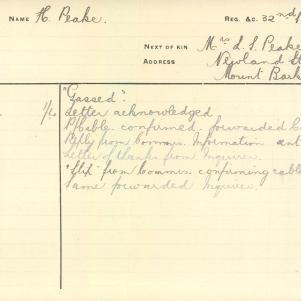 NAME H. Peake. REG. &C. 32nd
NEXT OF KIN Mrs L. S. Peake
ADDRESS Newland St
Mount Bark
"Gassed".
Letter acknowledged
P/Cable confirmed, forwarded
Reply from Commrs. Information
Letter of thanks from Inquirer.
from Commrs. confirming cable
Same forwarded Inquirer.